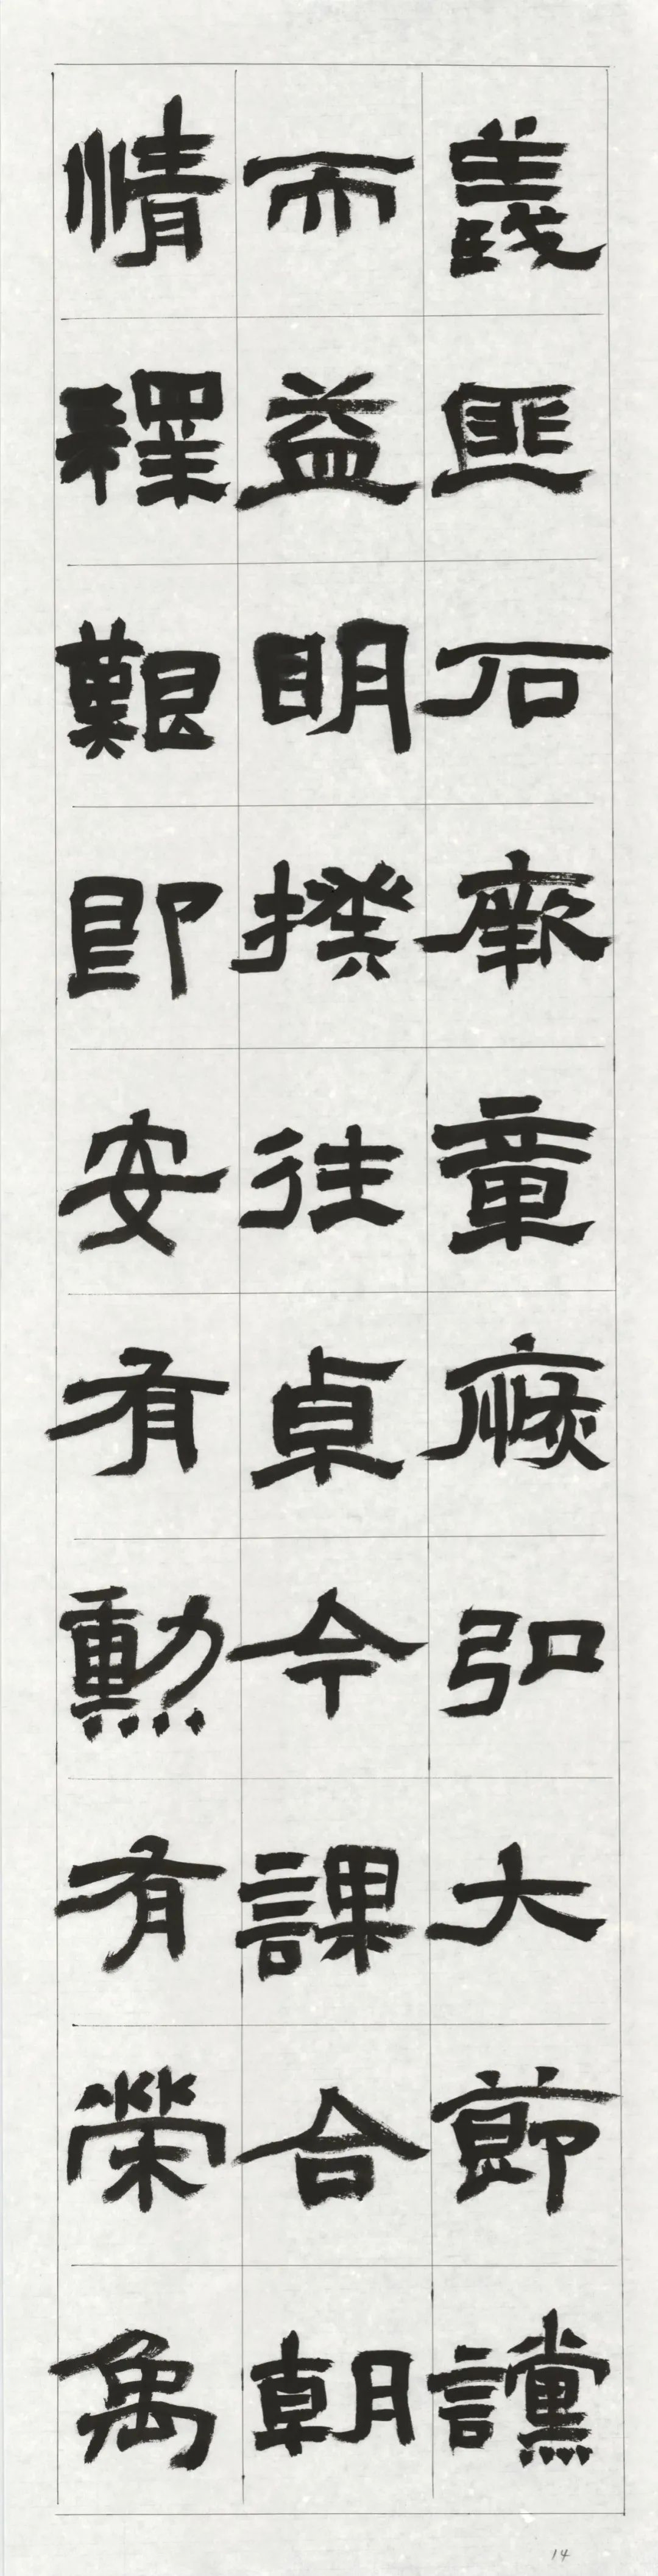 義匪石厥童㾕弘大節讜
而益明揆往卓今課合朝
情釋艱即安有勳有榮爲
14